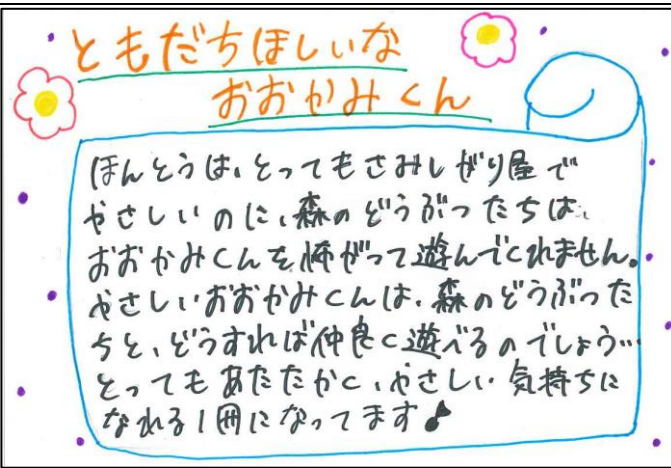 ともだちほしいな
おおかみくん
ほんとうは、とってもさみしがり屋で
やさしいのに、森のどうぶつたちは、
おおかみくんを怖がって遊んでくれません。
やさしいおおかみくんは、森のどうぶつた
ちと、どうすれば仲良く遊べるのでしょう…
とってもあたたかく、やさしい気持ちに
なれる1冊になってます♪